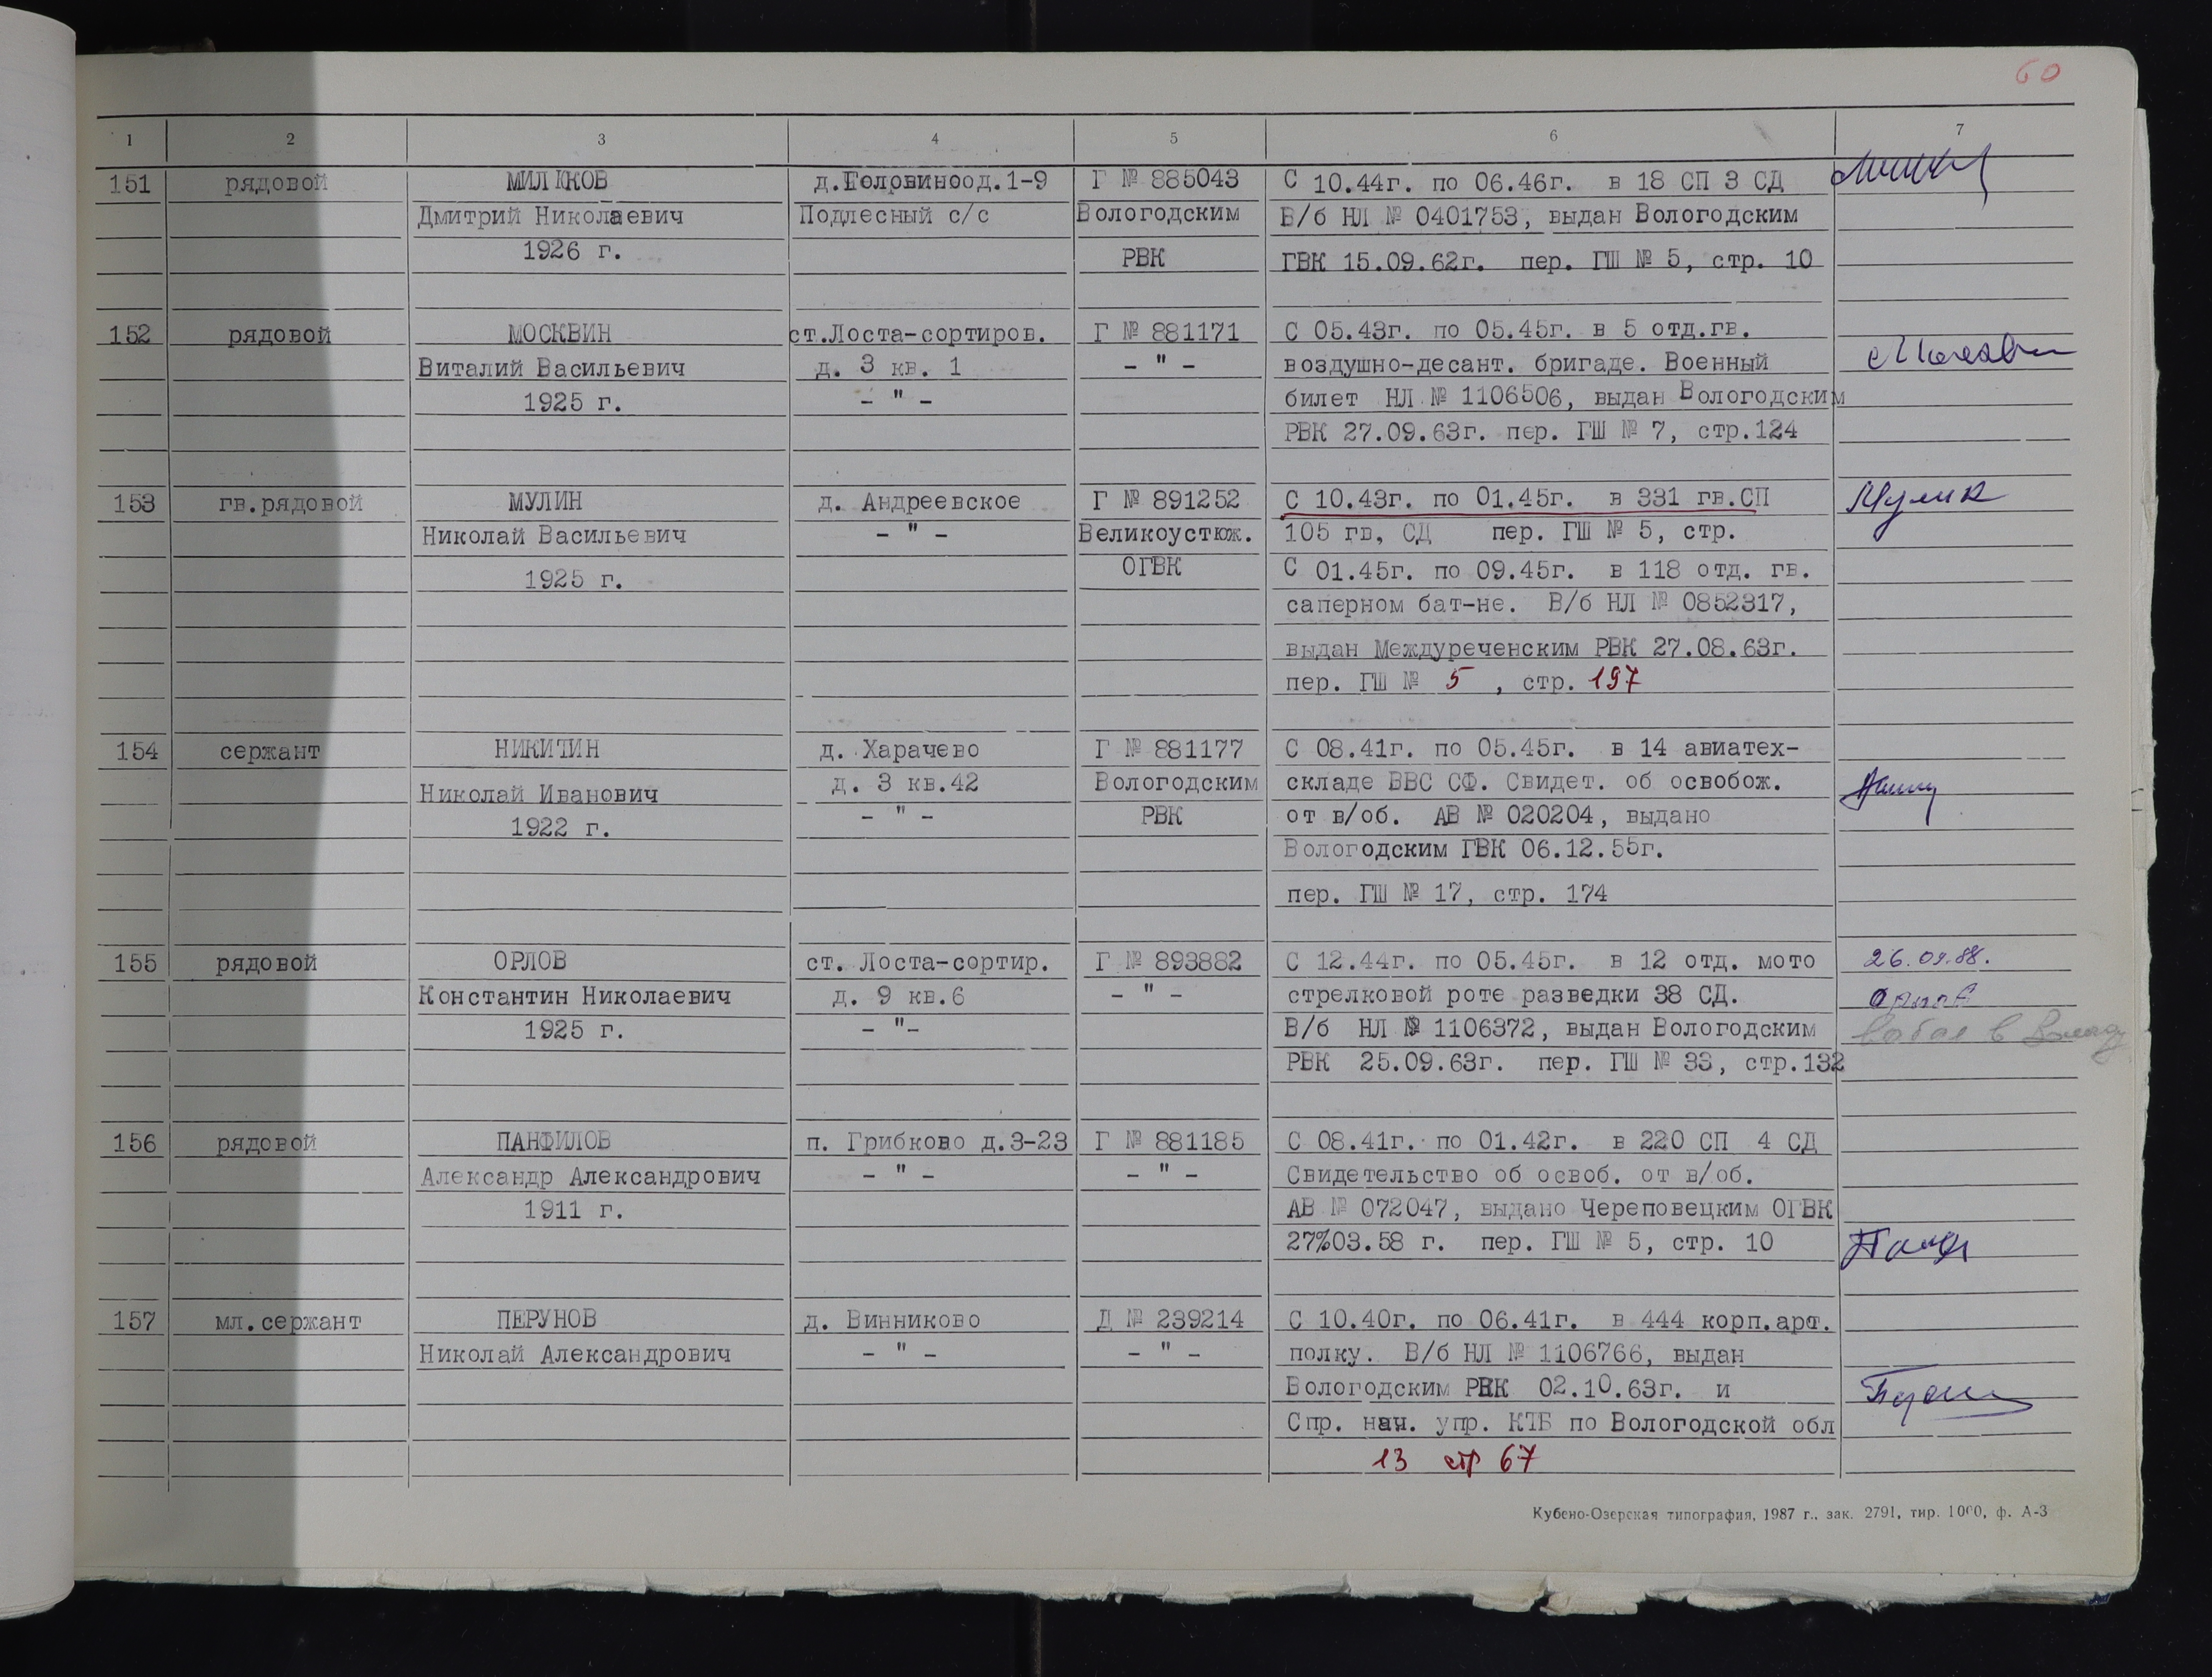 60
1 2 3 4 5 6 7
151 рядовой МИЛЮКОВ д.Головиноод.1-9 Г № 885043 С 10.44г. по 06.46г. в 18 СП 3 СД
Дмитрий Николаевич Подлесный с/с Вологодским В/б НЛ № 0401753, выдан Вологодским
1926 г. РВК ГВК 15.09.62г. пер. ГШ № 5, стр. 10
152 рядовой МОСКВИН ст.Лоста-сортиров. Г № 881171 С 05.43г. по 05.45г. в 5 отд.гв.
Виталий Васильевич д. 3 кв. 1 - " - воздушно-десант. бригаде. Военный
1925 г. - " - билет НЛ № 1106506, выдан Вологодским
РВК 27.09.63г. пер. ГШ № 7, стр.124
153 гв.рядовой МУЛИН д. Андреевское Г № 891252 С 10.43г. по 01.45г. в 331 гв.СП Мулин
Николай Васильевич - " - Великоустюж. 105 гв, СД пер. ГШ № 5, стр.
1925 г. ОГВК С 01.45г. по 09.45г. в 118 отд. гв.
саперном бат-не. В/б НЛ № 0852317,
выдан Междуреченским РВК 27.08.63г.
пер. ГШ № 5 , стр. 197
154 сержант НИКИТИН д. Харачево Г № 881177 С 08.41г. по 05.45г. в 14 авиатех-
Николай Иванович д. 3 кв.42 Вологодским складе ВВС СФ. Свидет. об освобож.
1922 г. - " - РВК от в/об. АВ № 020204, выдано
Вологодским ГВК 06.12.55г.
пер. ГШ № 17, стр. 174
155 рядовой ОРЛОВ ст. Лоста-сортир. Г № 893882 С 12.44г. по 05.45г. в 12 отд. мото 26.09.88.
Константин Николаевич д. 9 кв.6 - " - стрелковой роте разведки 38 СД.
1925 г. - "- В/б НЛ № 1106372, выдан Вологодским
РВК 25.09.63г. пер. ГШ № 33, стр.132
156 рядовой ПАНФИЛОВ п. Грибково д.3-23 Г № 881185 С 08.41г. по 01.42г. в 220 СП 4 СД
Александр Александрович - " - - " - Свидетельство об освоб. от в/об.
1911 г. АВ № 072047, выдано Череповецким ОГВК
27%03.58 г. пер. ГШ № 5, стр. 10
157 мл.сержант ПЕРУНОВ д. Винниково Д № 239214 С 10.40г. по 06.41г. в 444 корп.арт.
Николай Александрович - " - - " - полку. В/б НЛ № 1106766, выдан
Вологодским РВК 02.10.63г. и
Спр. нач. упр. КГБ по Вологодской обл
13 стр 67
Кубено-Озерская типография, 1987 г., зак. 2791, тир. 1000, ф. А-3